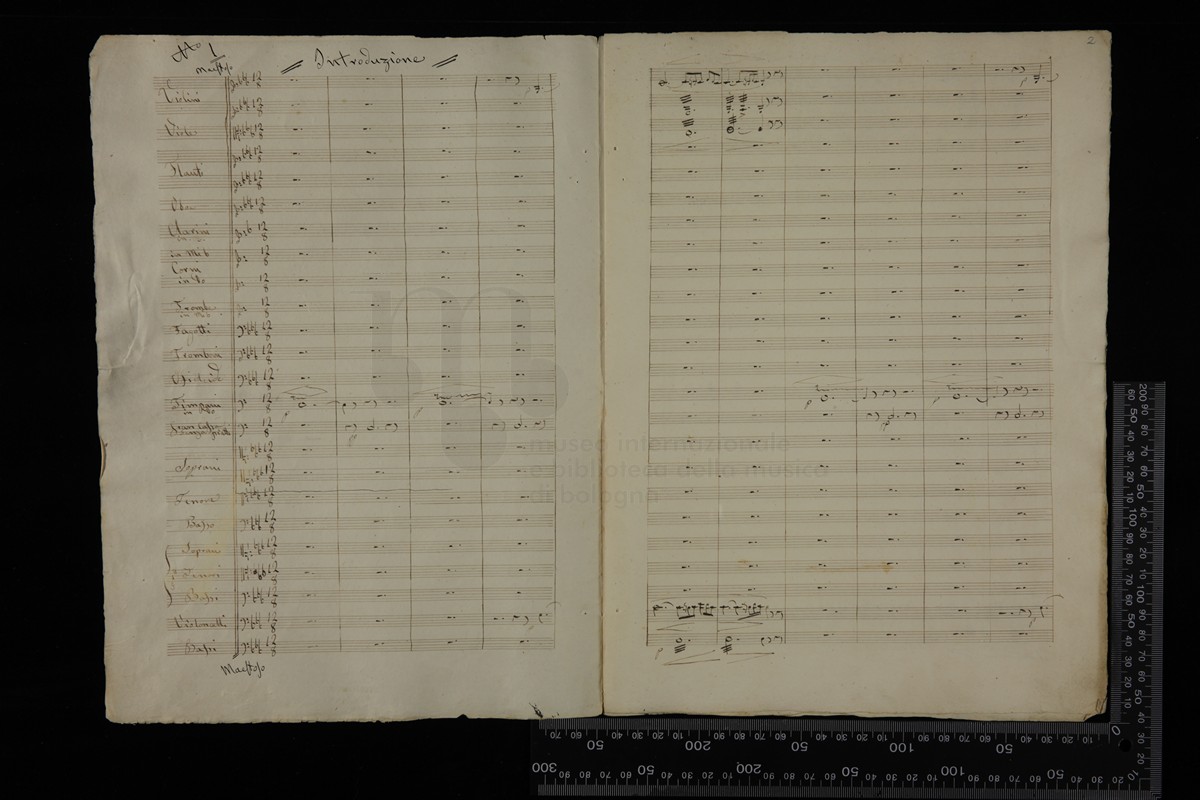 No 1
Introduzione
Maestoso
Violini
Viole
Flauti
Oboe
Clarini
in Mib
Corni
in Do
Trombe
Fagotti
Tromboni
Timpani
Gran Cassa
Soprani
Tenore
Basso
Soprani
Tenori
Bassi
Violoncelli
Bassi
Maestoso
2
museo internazionale
e biblioteca della musica
di bologna